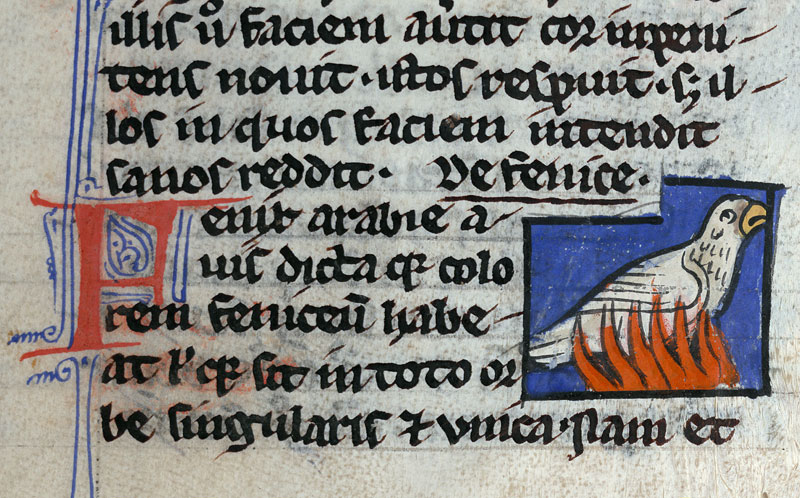 illis ů faciem au̾tit cor inpeni-
tens nouit · istos respuit · sꝫ il-
los in quos faciem intendit
sanos reddit · De fenice ·
Fenix arabie a-
uis dicta qꝛ colo
rem feniceū habe-
at lꝰ qꝛ sit in toto or
be singularis ⁊ unica · nam et